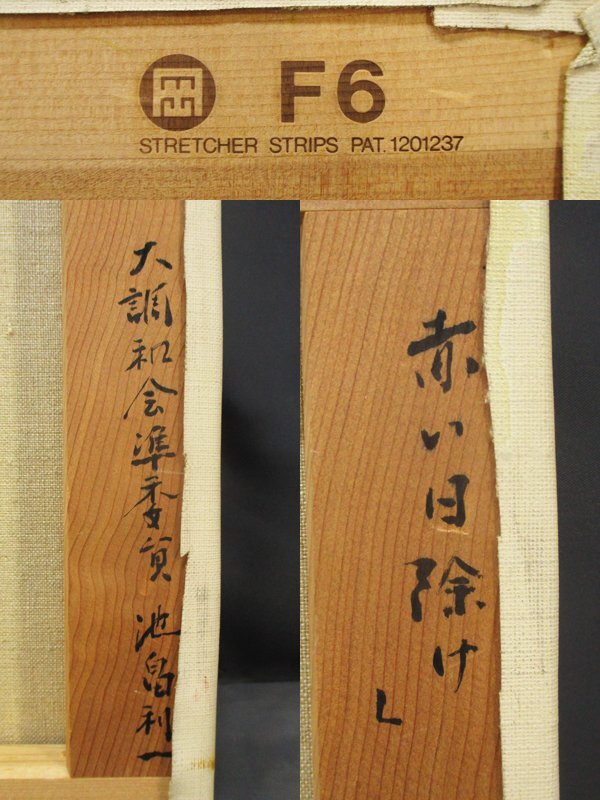 F6
STRETCHER STRIPS PAT.1201237
大調和会準委員 池畠利一
赤い日除け
L